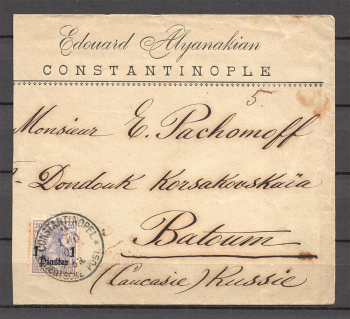 Edouard Alyanakian
CONSTANTINOPLE
5
Monsieur E. Pachomoff
Dondouk Korsakovskaïa
Batoum
(Caucasie) Russie
CONSTANTINOPEL
1 1
Piaster
DEUTSCHE POST